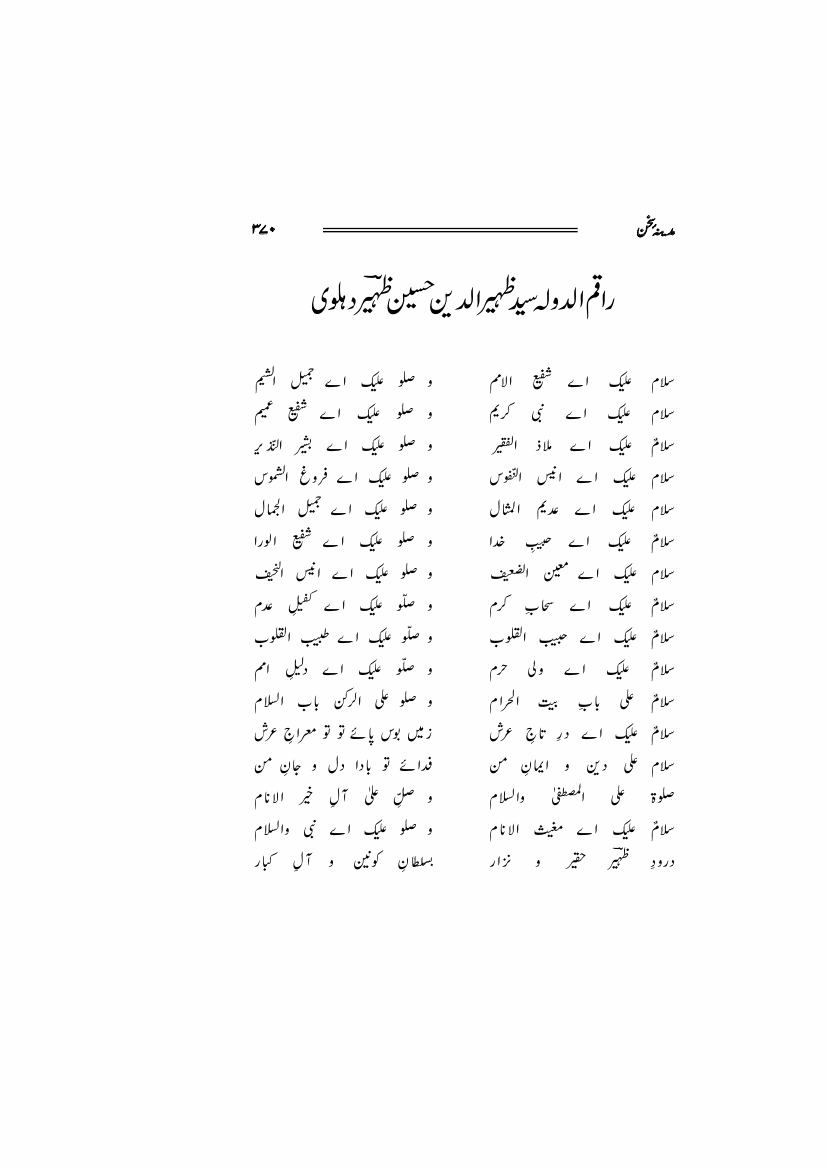 مدینہ سخن ۳۷۰
راقم الدولہ سید ظہیر الدین حسین ظہیؔر دہلوی
سلام علیک اے شفیع الامم و صلو علیک اے جمیل الشیم
سلام علیک اے نبی کریم و صلو علیک اے شفیع عمیم
سلامٌ علیک اے ملاذ الفقیر و صلو علیک اے بشیر النّذیر
سلام علیک اے انیس النّفوس و صلو علیک اے فروغ الشموس
سلام علیک اے عدیم المثال و صلو علیک اے جمیل الجمال
سلامٌ علیک اے حبیبِ خدا و صلو علیک اے شفیع الورا
سلام علیک اے معین الضعیف و صلو علیک اے انیس النحیف
سلامٌ علیک اے سحابِ کرم و صلّو علیک اے کفیلِ عدم
سلامٌ علیک اے حبیب القلوب و صلّو علیک اے طبیب القلوب
سلامٌ علیک اے ولی حرم و صلّو علیک اے دلیلِ امم
سلامٌ علی بابِ بیت الحرام و صلو علی الرکن باب السلام
سلامٌ علیک اے درِ تاجِ عرش زمیں بوس پائے تو تو معراجِ عرش
سلام علی دین و ایمانِ من فدائے تو بادا دل و جانِ من
صلوۃ علی المصطفیٰ والسلام و صلِّ علیٰ آلِ خیر الانام
سلامٌ علیک اے مغیث الانام و صلو علیک اے نبی والسلام
درودِ ظہیؔر حقیر و نزار بسلطانِ کونین و آلِ کبار